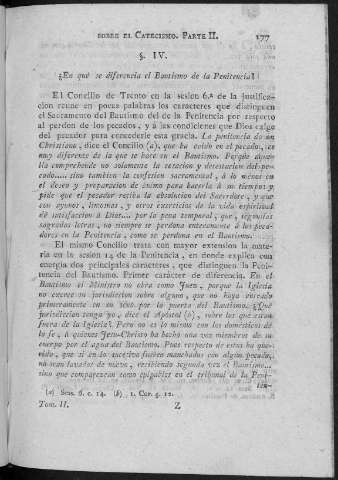 SOBRE EL CATECISMO. PARTE II. 177
§. IV.
¿En qué se diferencia el Bautismo de la Penitencia?
El Concilio de Trento en la sesion 6.ª de la justifica-
cion reune en pocas palabras los caracteres que distinguen
el Sacramento del Bautismo del de la Penitencia por respecto
al perdon de los pecados, y á las condiciones que Dios exîge
del pecador para concederle esta gracia. La penitencia de un
Christiano, dice el Concilio (a), que ha caido en el pecado, es
muy diferente de la que se hace en el Bautismo. Porque aque-
lla comprehende no solamente la cesacion y detestacion del pe-
cado..... sino tambien la confesion sacramental, á lo ménos en
el deseo y preparacion de ánimo para hacerla á su tiempo: y
pide que el pecador reciba la absolucion del Sacerdote, y que
con ayunos, limosnas, y otros exercicios de la vida espiritual
dé satisfaccion á Dios..... por la pena temporal, que, segun las
sagradas letras, no siempre se perdona enteramente á los peca-
dores en la Penitencia, como se perdona en el Bautismo.
El mismo Concilio trata con mayor extension la mate-
ria en la sesion 14 de la Penitencia, en donde explica con
energía dos principales caracteres, que distinguen la Peni-
tencia del Bautismo. Primer carácter de diferencia. En el
Bautismo el Ministro no obra como Juez, porque la Iglesia
no exerce su jurisdiccion sobre alguno, que no haya entrado
primeramente en su seno por la puerta del Bautismo. ¿Qué
jurisdiccion tengo yo, dice el Apóstol (b), sobre los que están
fuera de la Iglesia? Pero no es lo mismo con los domésticos de
la fe, á quienes Jesu-Christo ha hecho una vez miembros de su
cuerpo por el agua del Bautismo. Pues respecto de estos ha que-
rido, que si en lo sucesivo fuesen manchados con algun pecado,
no sean lavados de nuevo, recibiendo segunda vez el Bautismo...
sino que comparezcan como culpables en el tribunal de la Peni-
ten-
(a) Sess. 6. c. 14. (b) 1. Cor. 5. 12.
Tom. II. Z